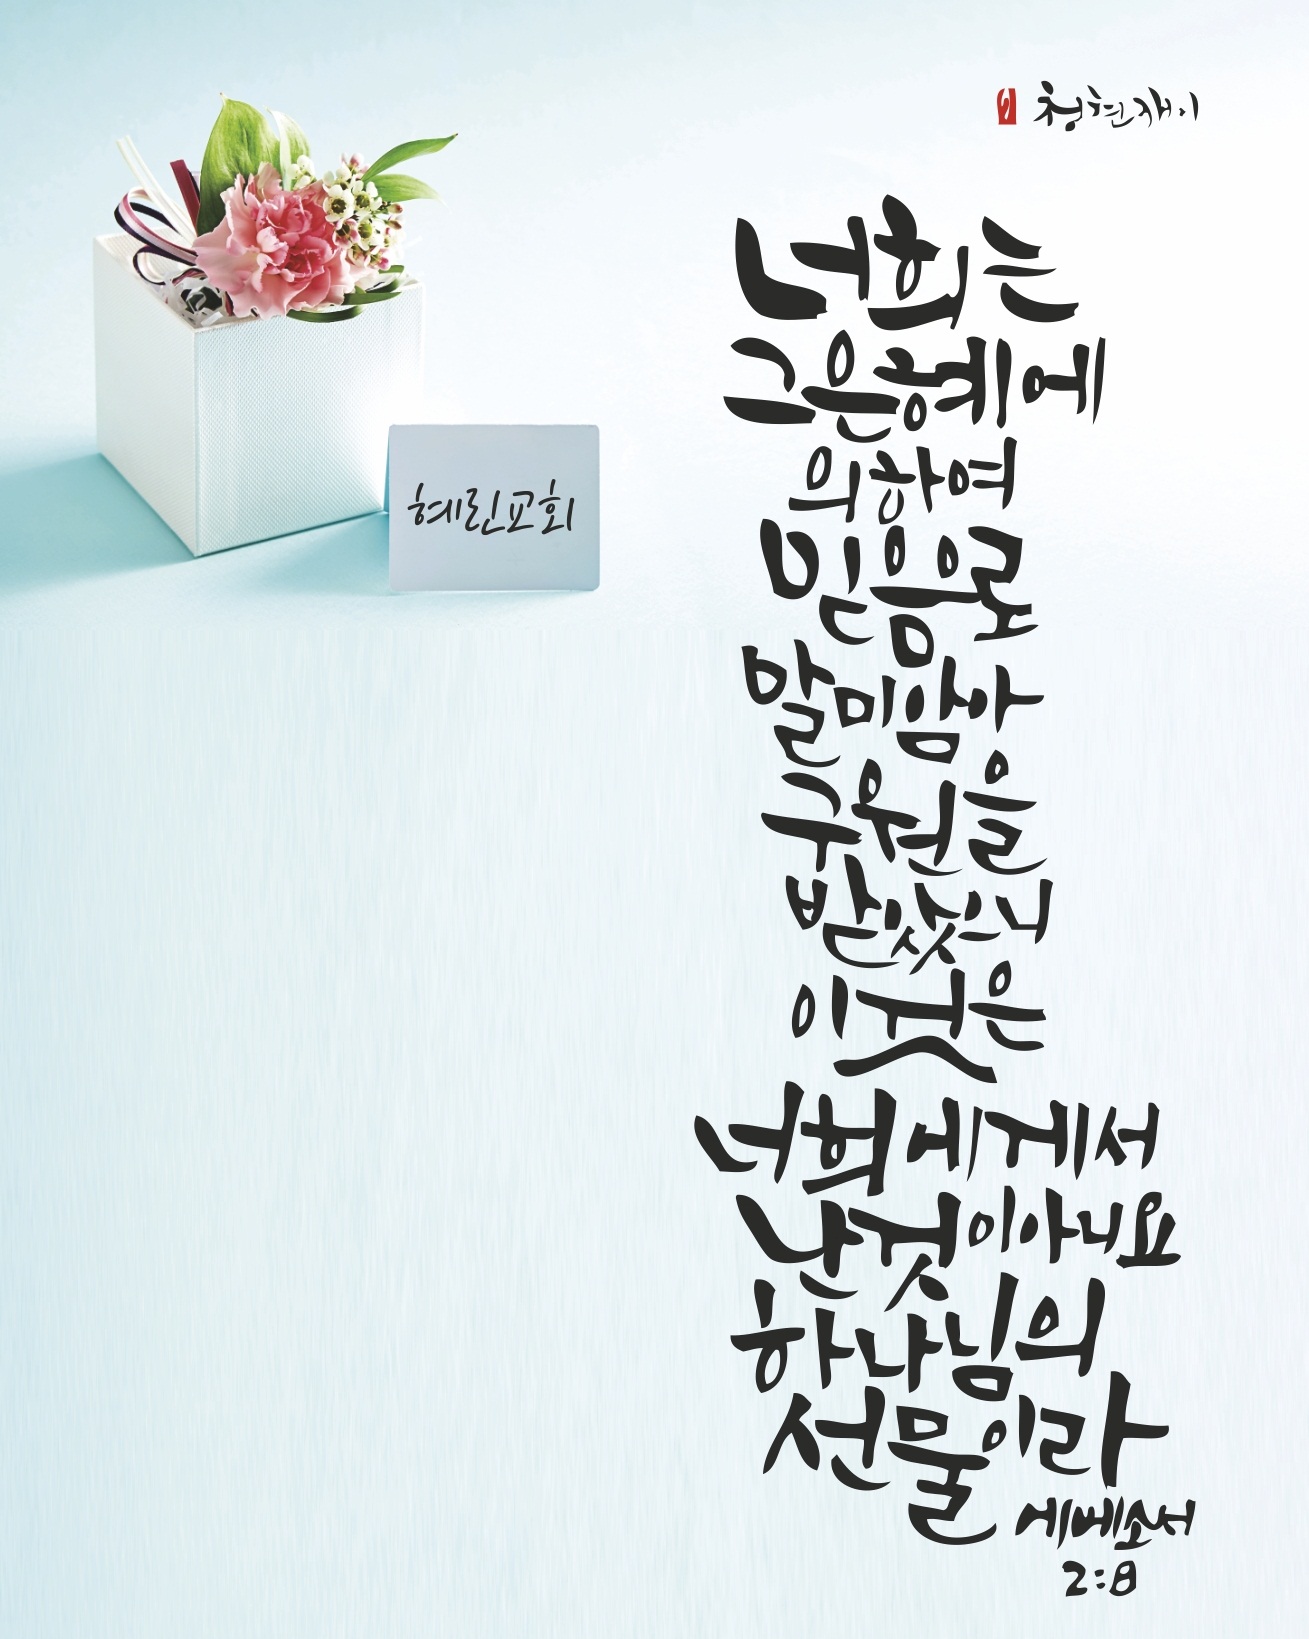 청현재이
혜린교회
너희는
그 은혜에
의하여
믿음으로
말미암아
구원을
받았으니
이것은
너희에게서
난 것이 아니요
하나님의
선물이라
에베소서
2:8